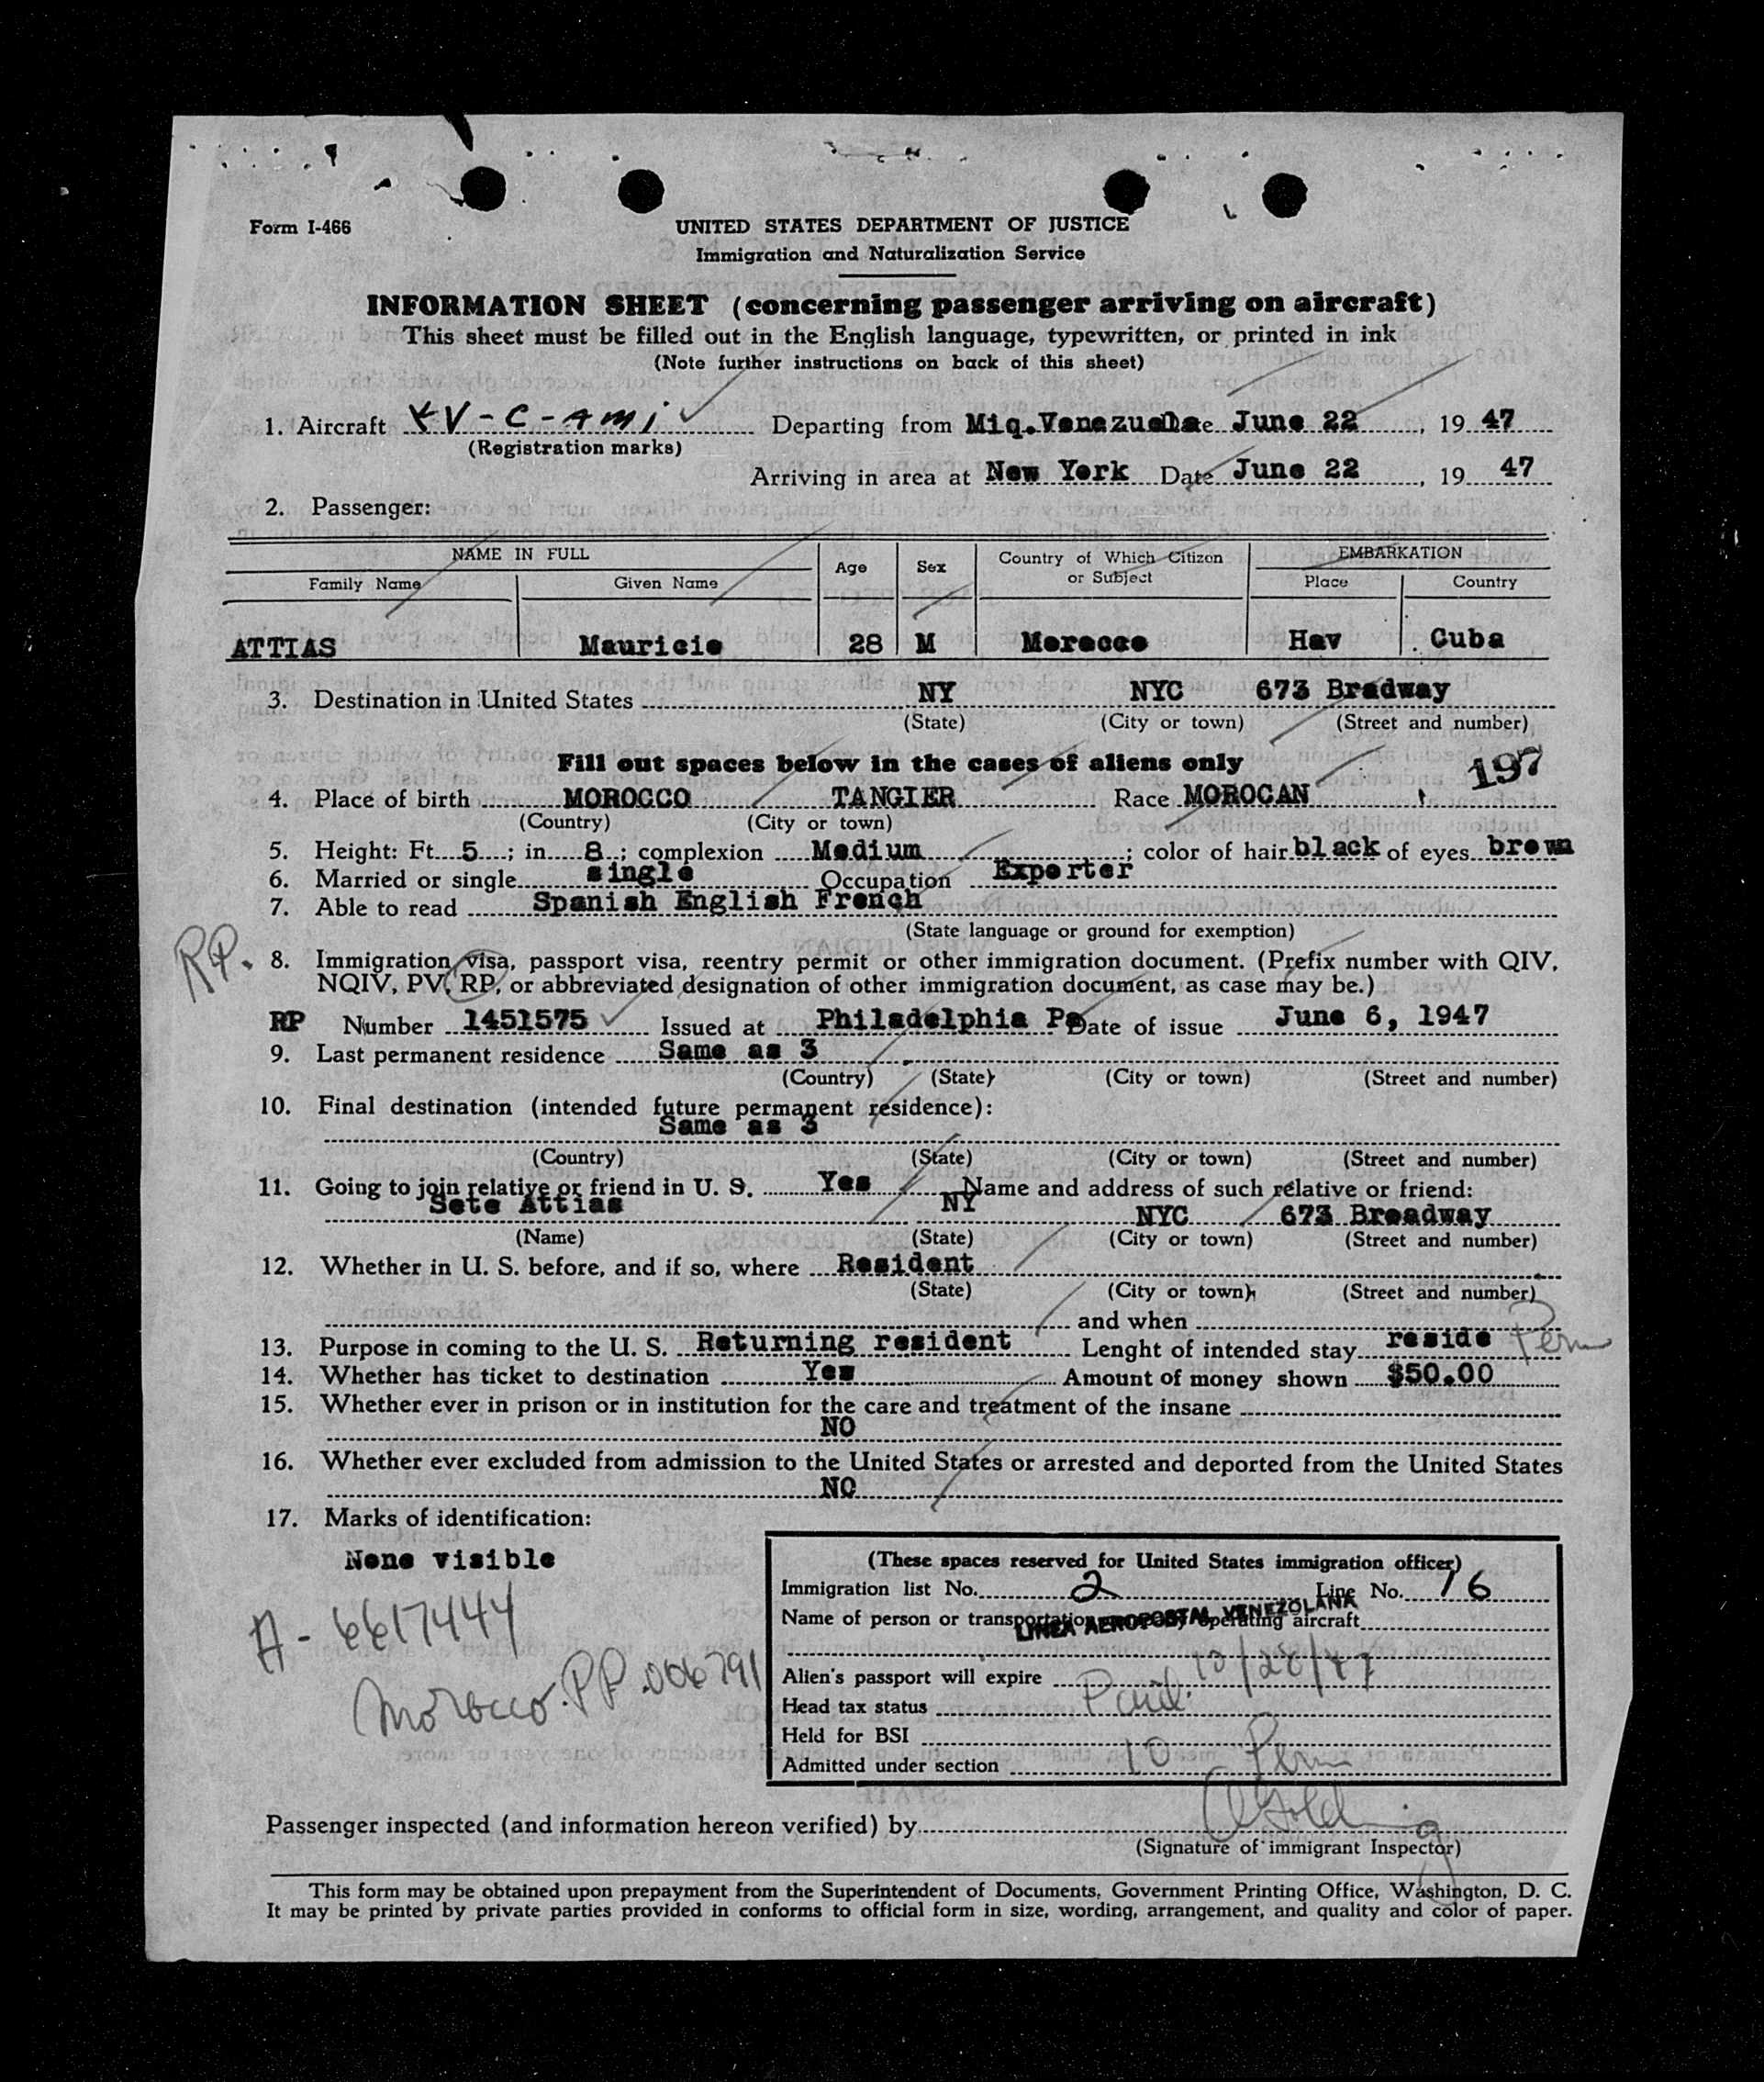 Form I-466
UNITED STATES DEPARTMENT OF JUSTICE
Immigration and Naturalization Service
INFORMATION SHEET (concerning passenger arriving on aircraft)
This sheet must be filled out in the English language, typewritten, or printed in ink
(Note further instructions on back of this sheet)
1. Aircraft YV-C-AMI Departing from Miq.Venezuela June 22, 19 47
(Registration marks)
Arriving in area at New York Date June 22, 19 47
2. Passenger:
NAME IN FULL Age Sex Country of Which Citizen or Subject EMBARKATION
Family Name Given Name Place Country
ATTIAS Mauricio 28 M Morocco Hav Cuba
3. Destination in United States NY NYC 673 Bradway
(State) (City or town) (Street and number)
Fill out spaces below in the cases of aliens only
197
4. Place of birth MOROCCO TANGIER Race MOROCAN
(Country) (City or town)
5. Height: Ft. 5; in. 8; complexion Medium; color of hair black of eyes brown
6. Married or single single Occupation Exporter
7. Able to read Spanish English French
(State language or ground for exemption)
RP.
8. Immigration visa, passport visa, reentry permit or other immigration document. (Prefix number with QIV,
NQIV, PV, RP, or abbreviated designation of other immigration document, as case may be.)
RP Number 1451575 Issued at Philadelphia Pa Date of issue June 6, 1947
9. Last permanent residence Same as 3
(Country) (State) (City or town) (Street and number)
10. Final destination (intended future permanent residence):
Same as 3
(Country) (State) (City or town) (Street and number)
11. Going to join relative or friend in U. S. Yes Name and address of such relative or friend:
Sete Attias NY NYC 673 Broadway
(Name) (State) (City or town) (Street and number)
12. Whether in U. S. before, and if so, where Resident
(State) (City or town) (Street and number)
and when
13. Purpose in coming to the U. S. Returning resident Lenght of intended stay reside Perm
14. Whether has ticket to destination Yes Amount of money shown $50.00
15. Whether ever in prison or in institution for the care and treatment of the insane
NO
16. Whether ever excluded from admission to the United States or arrested and deported from the United States
NO
17. Marks of identification:
None visible
A-6617444
Morocco. PP.006791
(These spaces reserved for United States immigration officer)
Immigration list No. 2 Line No. 16
Name of person or transportation operating aircraft
LINEA AEROPOSTAL VENEZOLANA
Alien's passport will expire 12/28/47
Head tax status Paid.
Held for BSI
Admitted under section 10 Perm
Passenger inspected (and information hereon verified) by
(Signature of immigrant Inspector)
This form may be obtained upon prepayment from the Superintendent of Documents, Government Printing Office, Washington, D. C.
It may be printed by private parties provided in conforms to official form in size, wording, arrangement, and quality and color of paper.